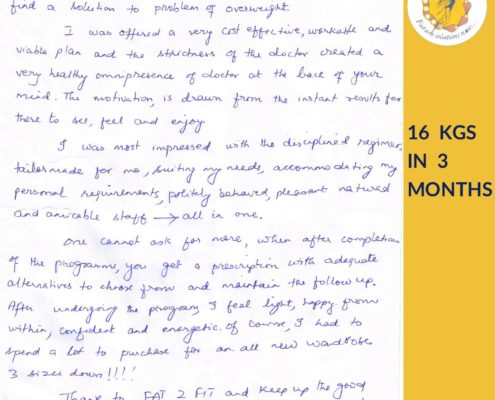 find a solution to problem of overweight.
I was offered a very cost effective, workable and
viable plan and the strictness of the doctor created a
very healthy omnipresence of doctor at the back of your
mind. The motivation, is drawn from the instant results for
there to see, feel and enjoy.
I was most impressed with the disciplined regimen,
tailormade for me, suiting my needs, accommodating my
personal requirements, politely behaved, pleasant natured
and amicable staff → all in one.
One cannot ask for more, when after completion
of the programm, you get a prescription with adequate
alternatives to choose from and maintain the follow up.
After undergoing the program, I feel light, happy from
within, confident and energetic. Of course, I had to
spend a lot to purchase for an all new wardrobe
3 sizes down!!!!
Thanx to FAT 2 FIT and keep up the good
16 KGS
IN 3
MONTHS